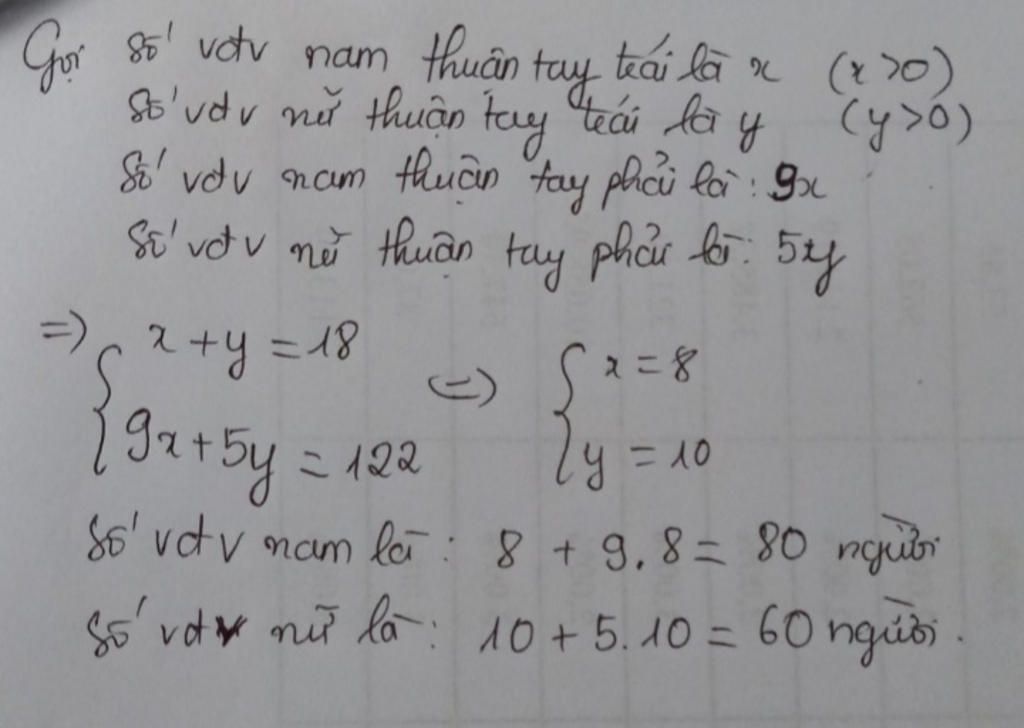 Gọi số vđv nam thuận tay trái là x (x>0)
Số vđv nữ thuận tay trái là y (y>0)
Số vđv nam thuận tay phải là: 9x
Số vđv nữ thuận tay phải là: 5y
=> { x+y=18 (=) { x=8
9x+5y=122 y=10
Số vđv nam là: 8 + 9.8 = 80 người
Số vđv nữ là: 10 + 5.10 = 60 người.